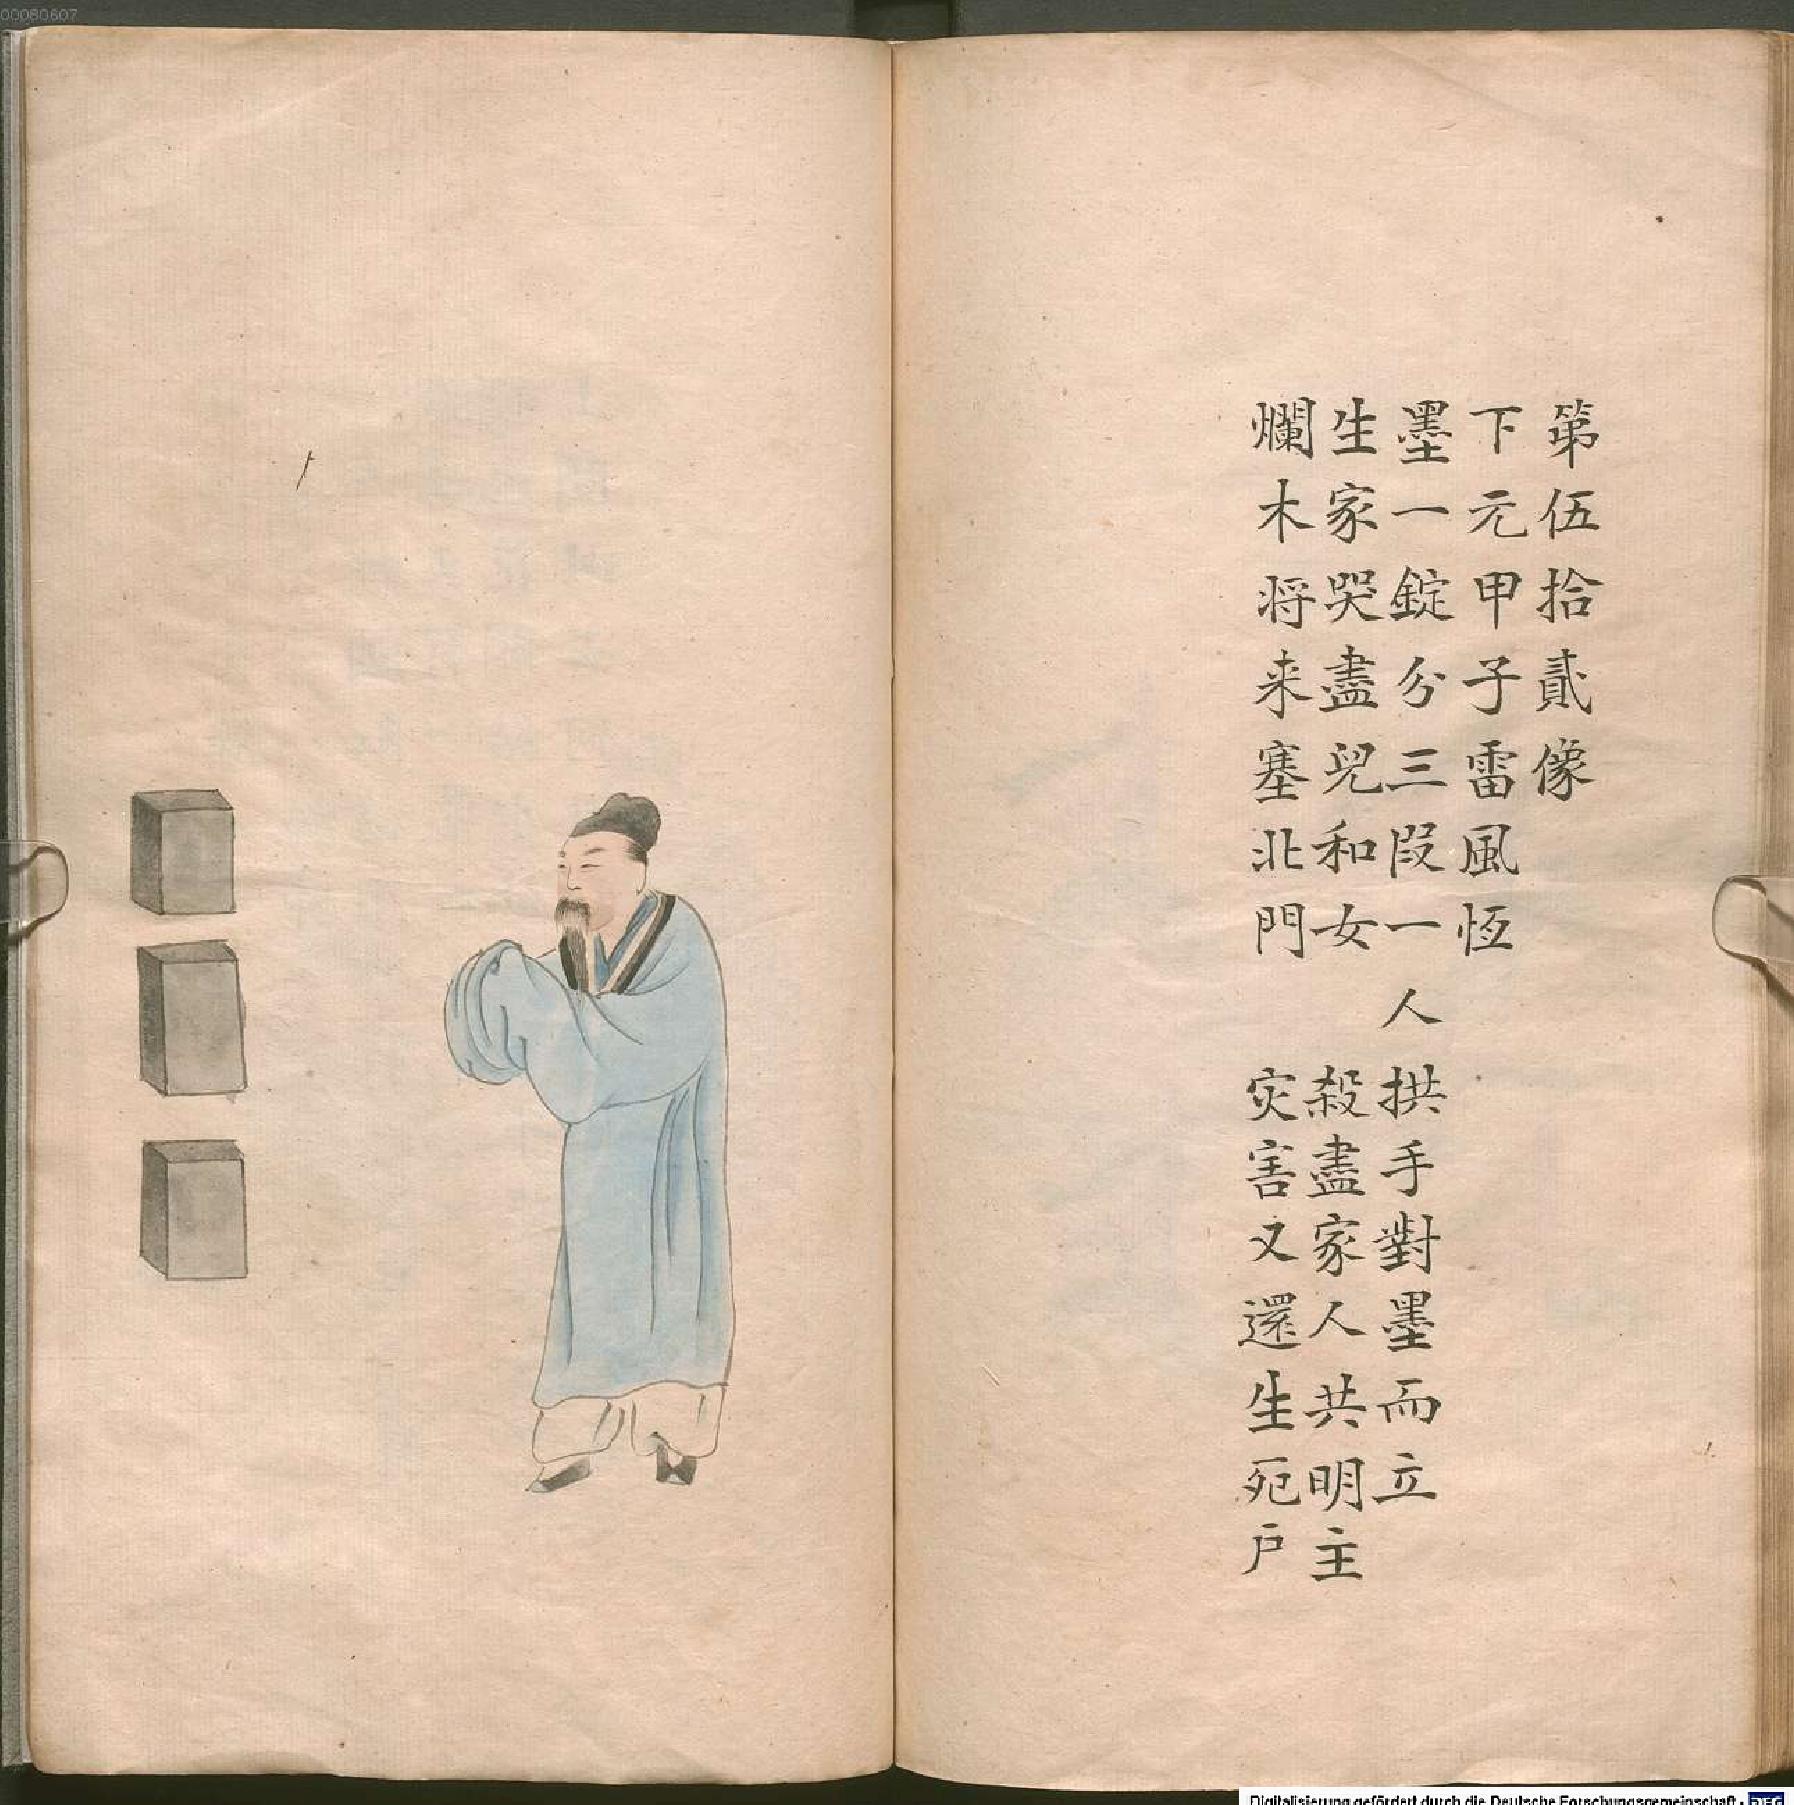 00080607
第伍拾貳像
下元甲子雷風恆
墨一錠分三段一人拱手對墨而立
生家哭盡兒和女 殺盡家人共明主
爛木将来塞北門 灾害又還生死戶
Digitalisierung gefördert durch die Deutsche Forschungsgemeinschaft - DFG